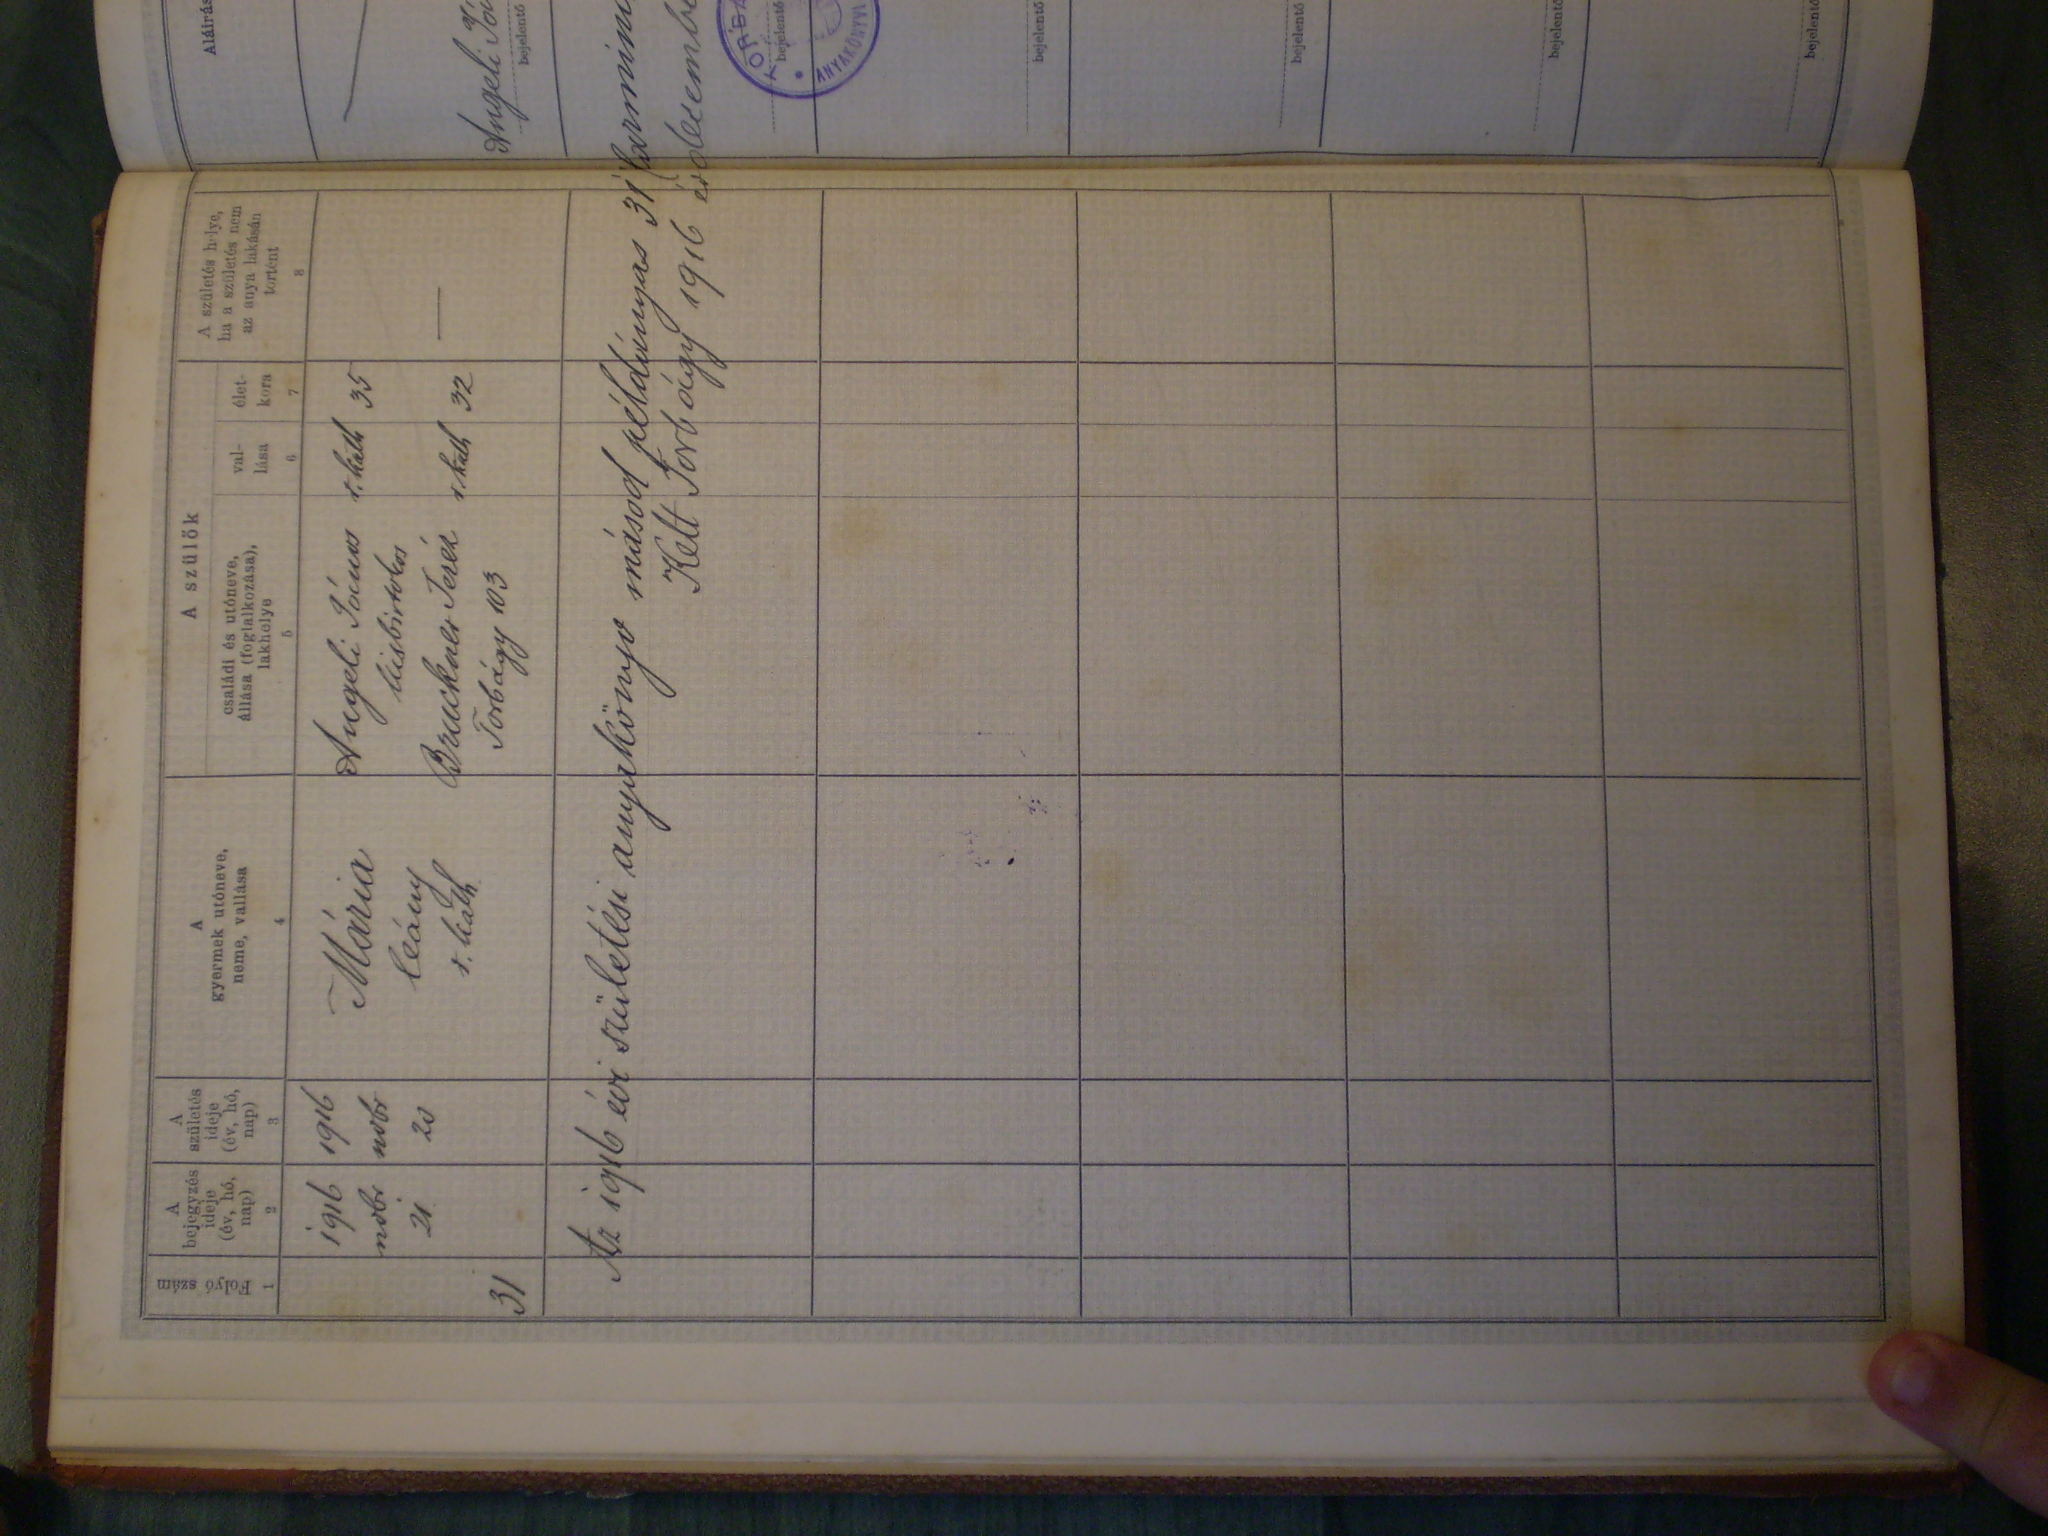 Folyó szám
1
A
bejegyzés
ideje
(év, hó,
nap)
2
A
születés
ideje
(év, hó,
nap)
3
A
gyermek utóneve,
neme, vallása
4
A szülők
családi és utóneve,
állása (foglalkozása),
lakhelye
5
val-
lása
6
élet-
kora
7
A születés helye,
ha a születés nem
az anya lakásán
történt
8
Aláírás
31
1916
nobr
21
1916
nobr
20
Mária
leány
r. kath
Angeli János
kisbirtokos
Bruckner Teréz
Torbágy 103
r. kath
r. kath
35
32
—
Angeli
bejelentő
Az 1916 évi születési anyakönyv másod példányas 31
Kelt Torbágy 1916 év december
bejelentő
ANYAKÖNYVI
bejelentő
bejelentő
bejelentő
bejelentő